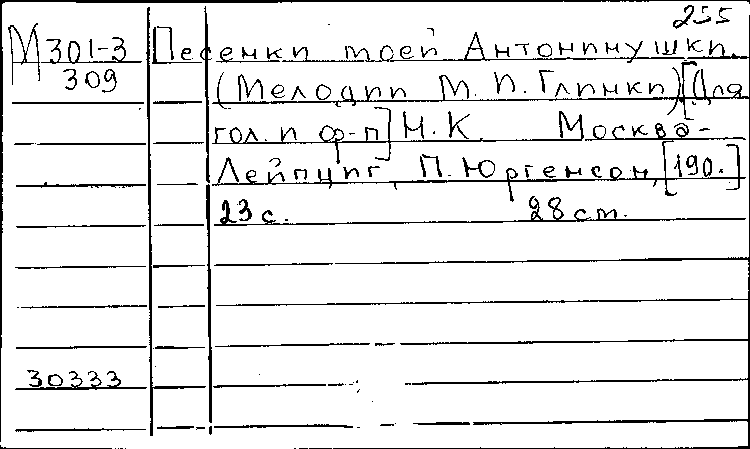 255
М 301-3 Песенки моей Антонинушки.
309 (Мелодии М. И. Глинки) [Для
гол. и ф-п] Н. К. Москва-
Лейпциг, П. Юргенсон, [190.]
23 с. 28 ст.
30333